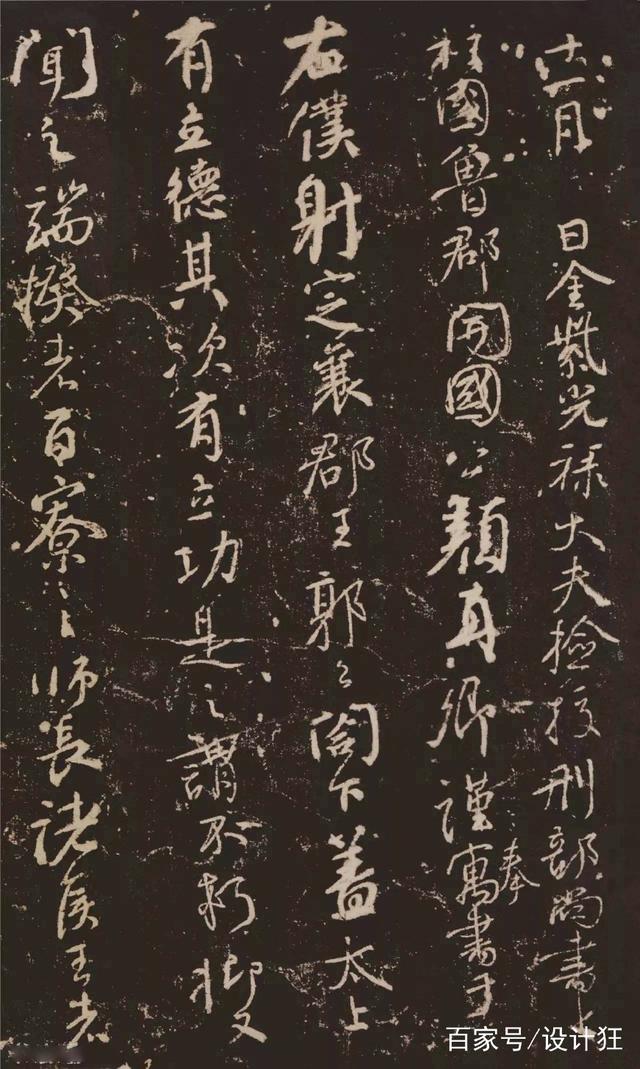 十一月 日金紫光祿大夫檢校刑部尚書上
柱國魯郡開國公顏真卿謹奉寓書于
右僕射定襄郡王郭公閤下蓋太上
有立德其次有立功是之謂不朽抑又
聞之端揆者百寮之師長諸侯王者
百家号/设计狂